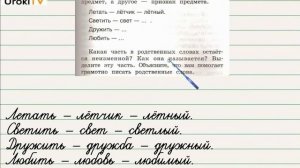 UrokiTV
предмет, а другое — признак предмета.
Летать — лётчик — лётный.
Светить — свет — ... .
Дружить — ...
Любить — ...
Какая часть в родственных словах остаёт-
ся неизменной? Как она называется? Вы-
делите эту часть. Объясните, что вам помогает
грамотно писать родственные слова.
Летать – лётчик – лётный.
Светить – свет – светлый.
Дружить – дружба – дружный.
Любить – любовь – любимый.